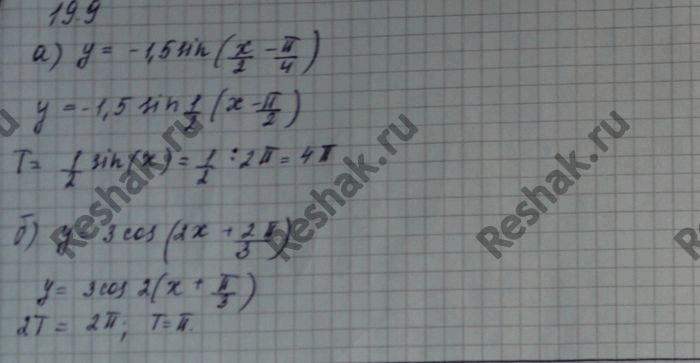 19.9
а) y = -1,5 sin(x/2 - π/4)
y = -1,5 sin 1/2 (x - π/2)
T = 1/2 sin(x) = 1/2 : 2π = 4π
б) y = 3 cos(2x + 2π/3)
y = 3 cos 2(x + π/3)
2T = 2π; T = π.
Reshak.ru
Reshak.ru
Reshak.ru